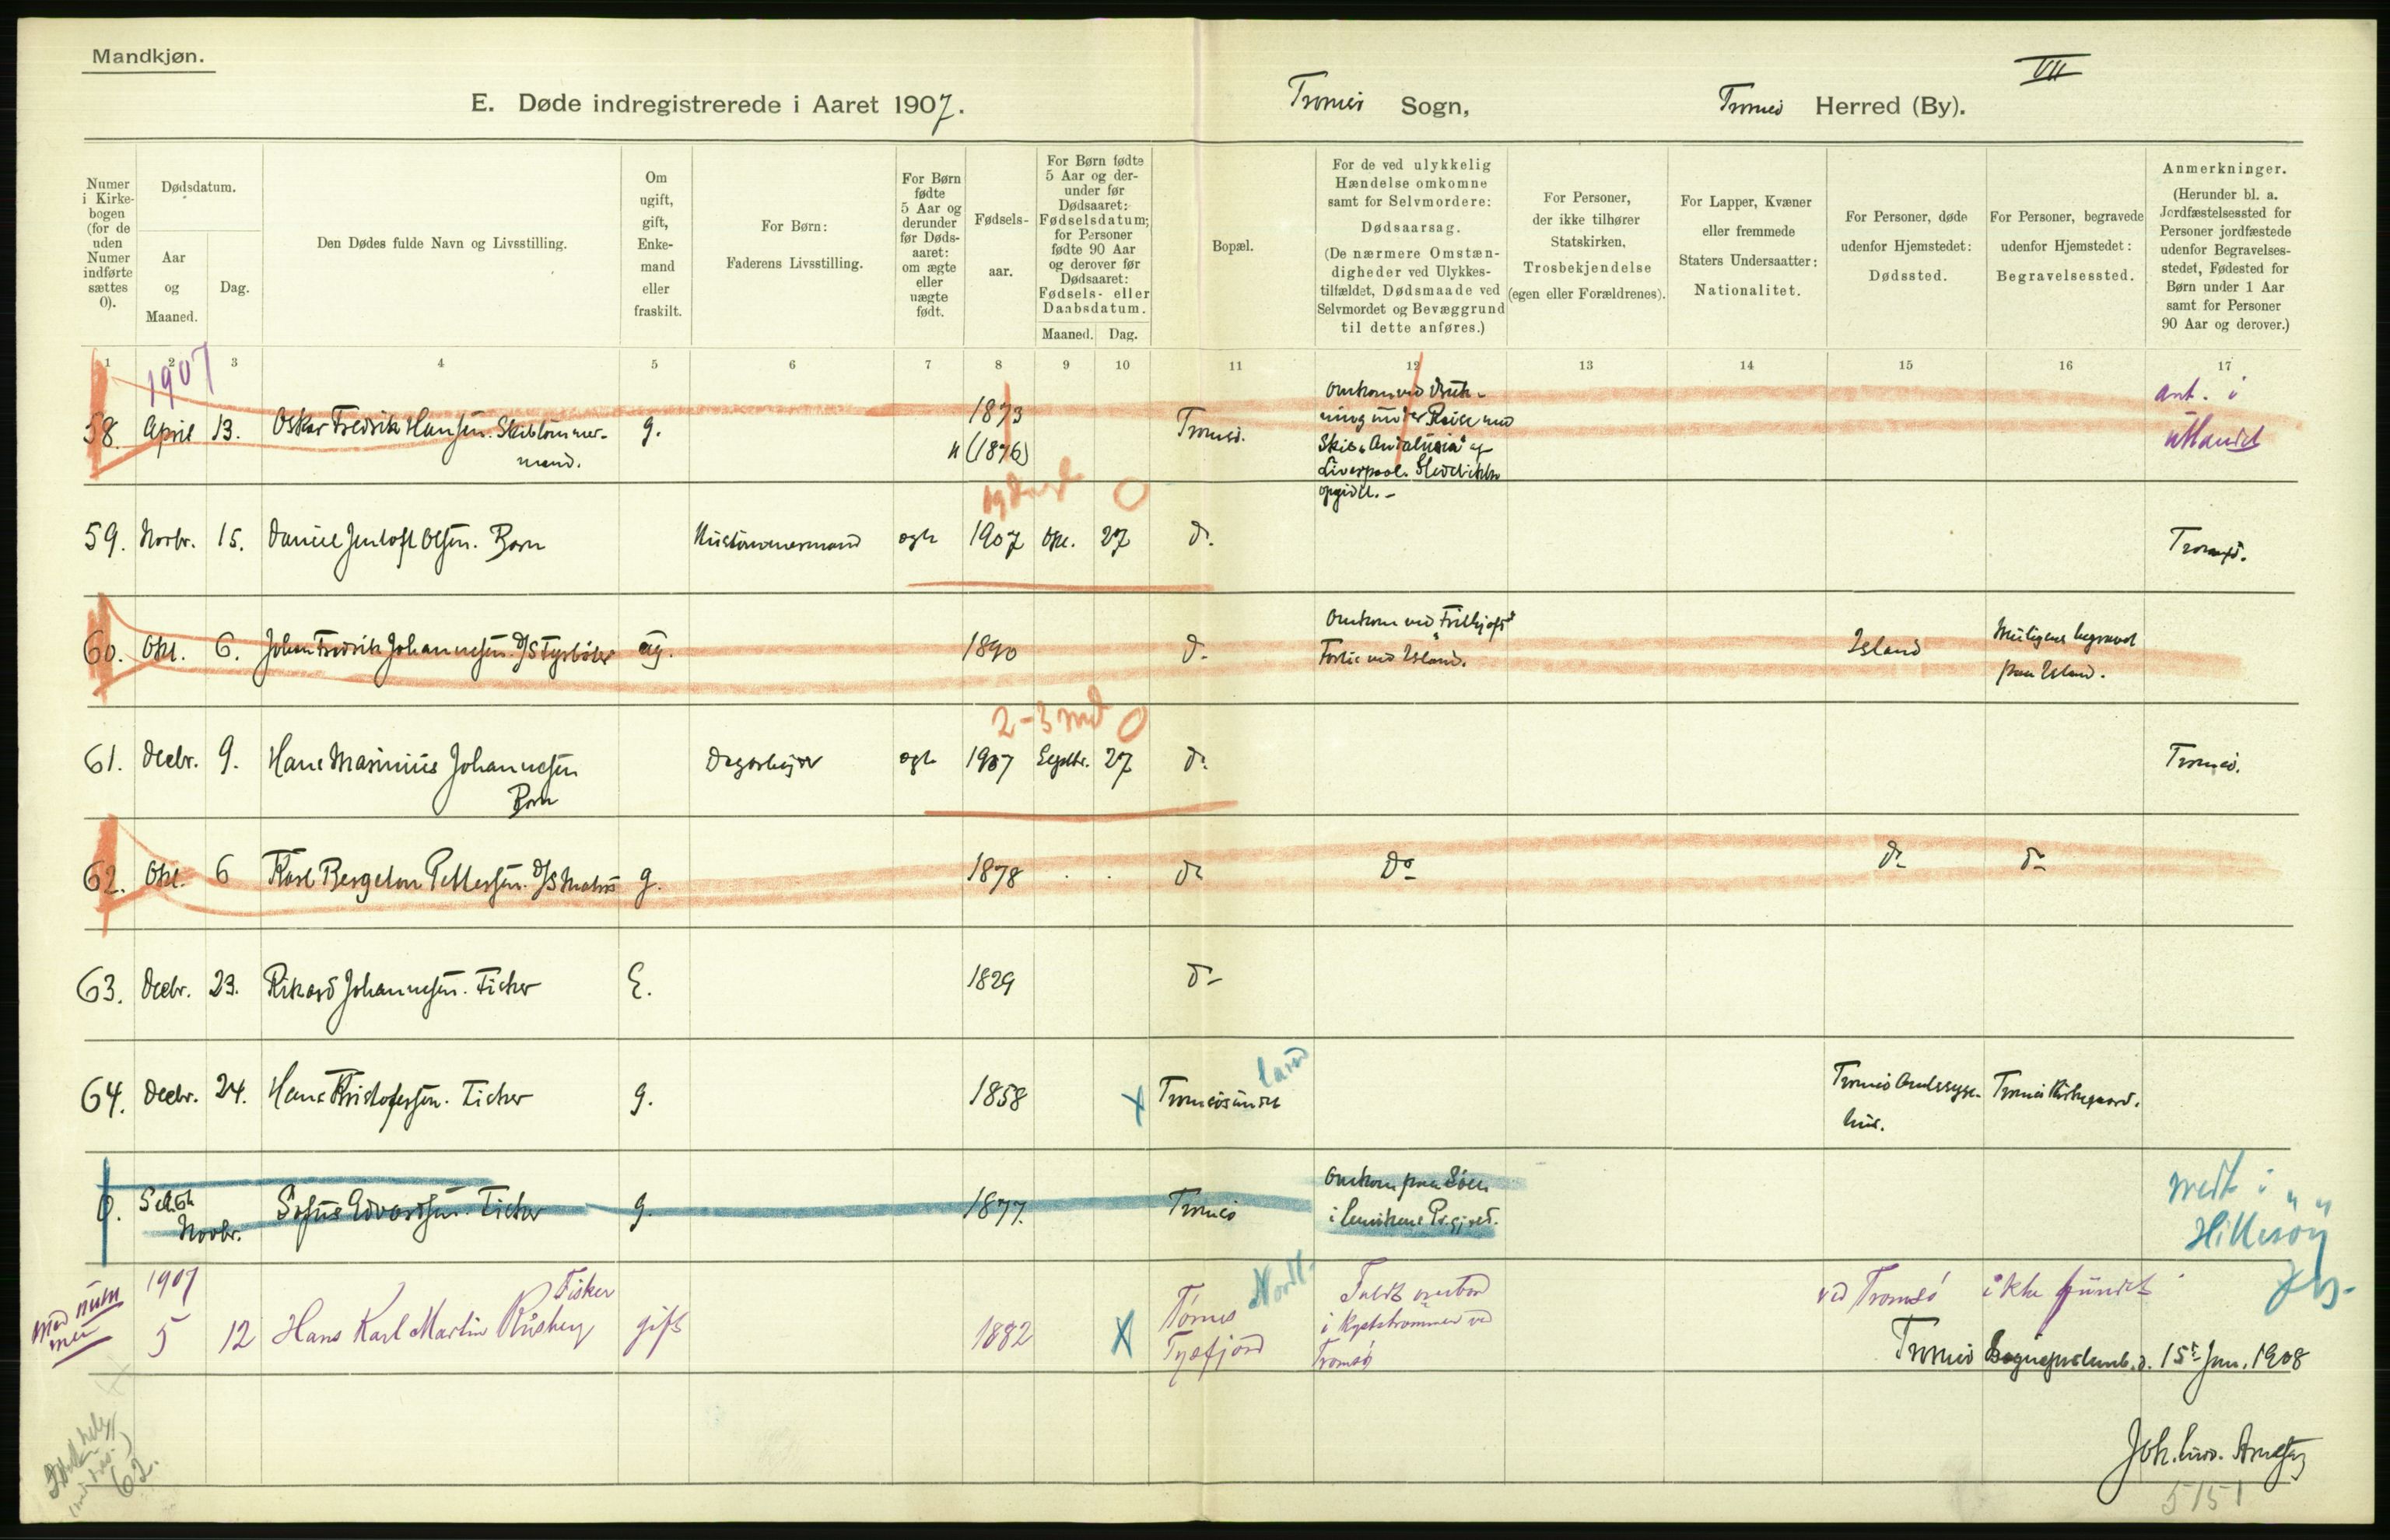 Mandkjøn.
VII
E. Døde indregistrerede i Aaret 1907.
Tromsø Sogn,
Tromsø Herred (By).
Numer i Kirkebogen (for de uden Numer indførte sættes 0).
Dødsdatum.
Aar og Maaned.
Dag.
Den Dødes fulde Navn og Livsstilling.
Om ugift, gift, Enkemand eller fraskilt.
For Børn:
Faderens Livsstilling.
For Børn fødte 5 Aar og derunder før Dødsaaret: om ægte eller uægte født.
Fødselsaar.
For Børn fødte 5 Aar og derunder før Dødsaaret: Fødselsdatum; for Personer fødte 90 Aar og derover før Dødsaaret: Fødsels- eller Daabsdatum.
Maaned. Dag.
Bopæl.
For de ved ulykkelig Hændelse omkomne samt for Selvmordere:
Dødsaarsag.
(De nærmere Omstændigheder ved Ulykkestilfældet, Dødsmaade ved Selvmordet og Bevæggrund til dette anføres.)
For Personer, der ikke tilhører Statskirken,
Trosbekjendelse
(egen eller Forældrenes).
For Lapper, Kvæner eller fremmede Staters Undersaatter:
Nationalitet.
For Personer, døde udenfor Hjemstedet:
Dødssted.
For Personer, begravede udenfor Hjemstedet:
Begravelsessted.
Anmerkninger.
(Herunder bl. a. Jordfæstelsessted for Personer jordfæstede udenfor Begravelsesstedet, Fødested for Børn under 1 Aar samt for Personer 90 Aar og derover.)
1 2 3 4 5 6 7 8 9 10 11 12 13 14 15 16 17
1907
58. April 13. Oskar Fredrik Hansen. Skibtømmermand. g. 1873 (1876) Tromsø.
Omkom ved Drukning under Reise med
Skib "Andalusia" af
Liverpool. Stedet ikke
opgivet.-
ant. i
utlandet
59. Novbr. 15. Daniel Jentoft Olsen. Barn Hustømmermand ægte 1907 Okt. 27 do. Tromsø.
60. Okt. 6. Johan Fredrik Johannesen. D/S Fyrbøter ug. 1890 do.
Omkom ved "Fridtjofs"
Forlis ved Island.
Island
Muligens begravet
paa Island.
2-3 md 0
61. Decbr. 9. Hans Marinius Johannesen
Barn
Dagarbejder ægte 1907 Septbr. 27 do. Tromsø.
62. Okt. 6 Karl Bergeton Pettersen. D/S Matros g. 1878 do do do do
63. Decbr. 23. Rikard Johannesen. Fisker E. 1829 do
64. Decbr. 24. Hans Kristofersen. Fisker g. 1858 x Tromsøsundet
land
Tromsø Amtssygehus.
Tromsø Kirkegaard.
0. Novbr. Sofus Edvardsen. Fisker g. 1877. Tromsø
Omkom paa Søen
i Lenvikens Prgjæld.
medt i " "
Hillesøy
1907
5 12 Hans Karl Martin Risberg Fisker gift 1882 x
Nordl.
Tysfjord
Faldt overbord
i Kyststrømmen ved
Tromsø
ved Tromsø ikke fundet
Tromsø Sogneprestemb. d. 15de Jan. 1908
Joh. Lud. Arnesen
62.
5151